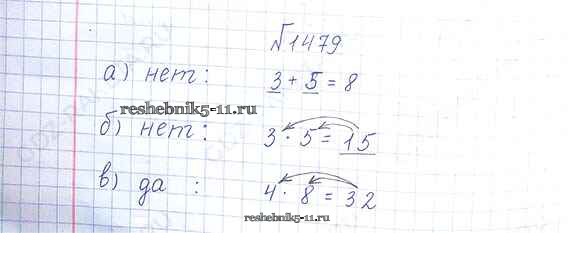 №1479
а) нет: 3 + 5 = 8
reshebnik5-11.ru
б) нет: 3 · 5 = 15
в) да : 4 · 8 = 32
reshebnik5-11.ru